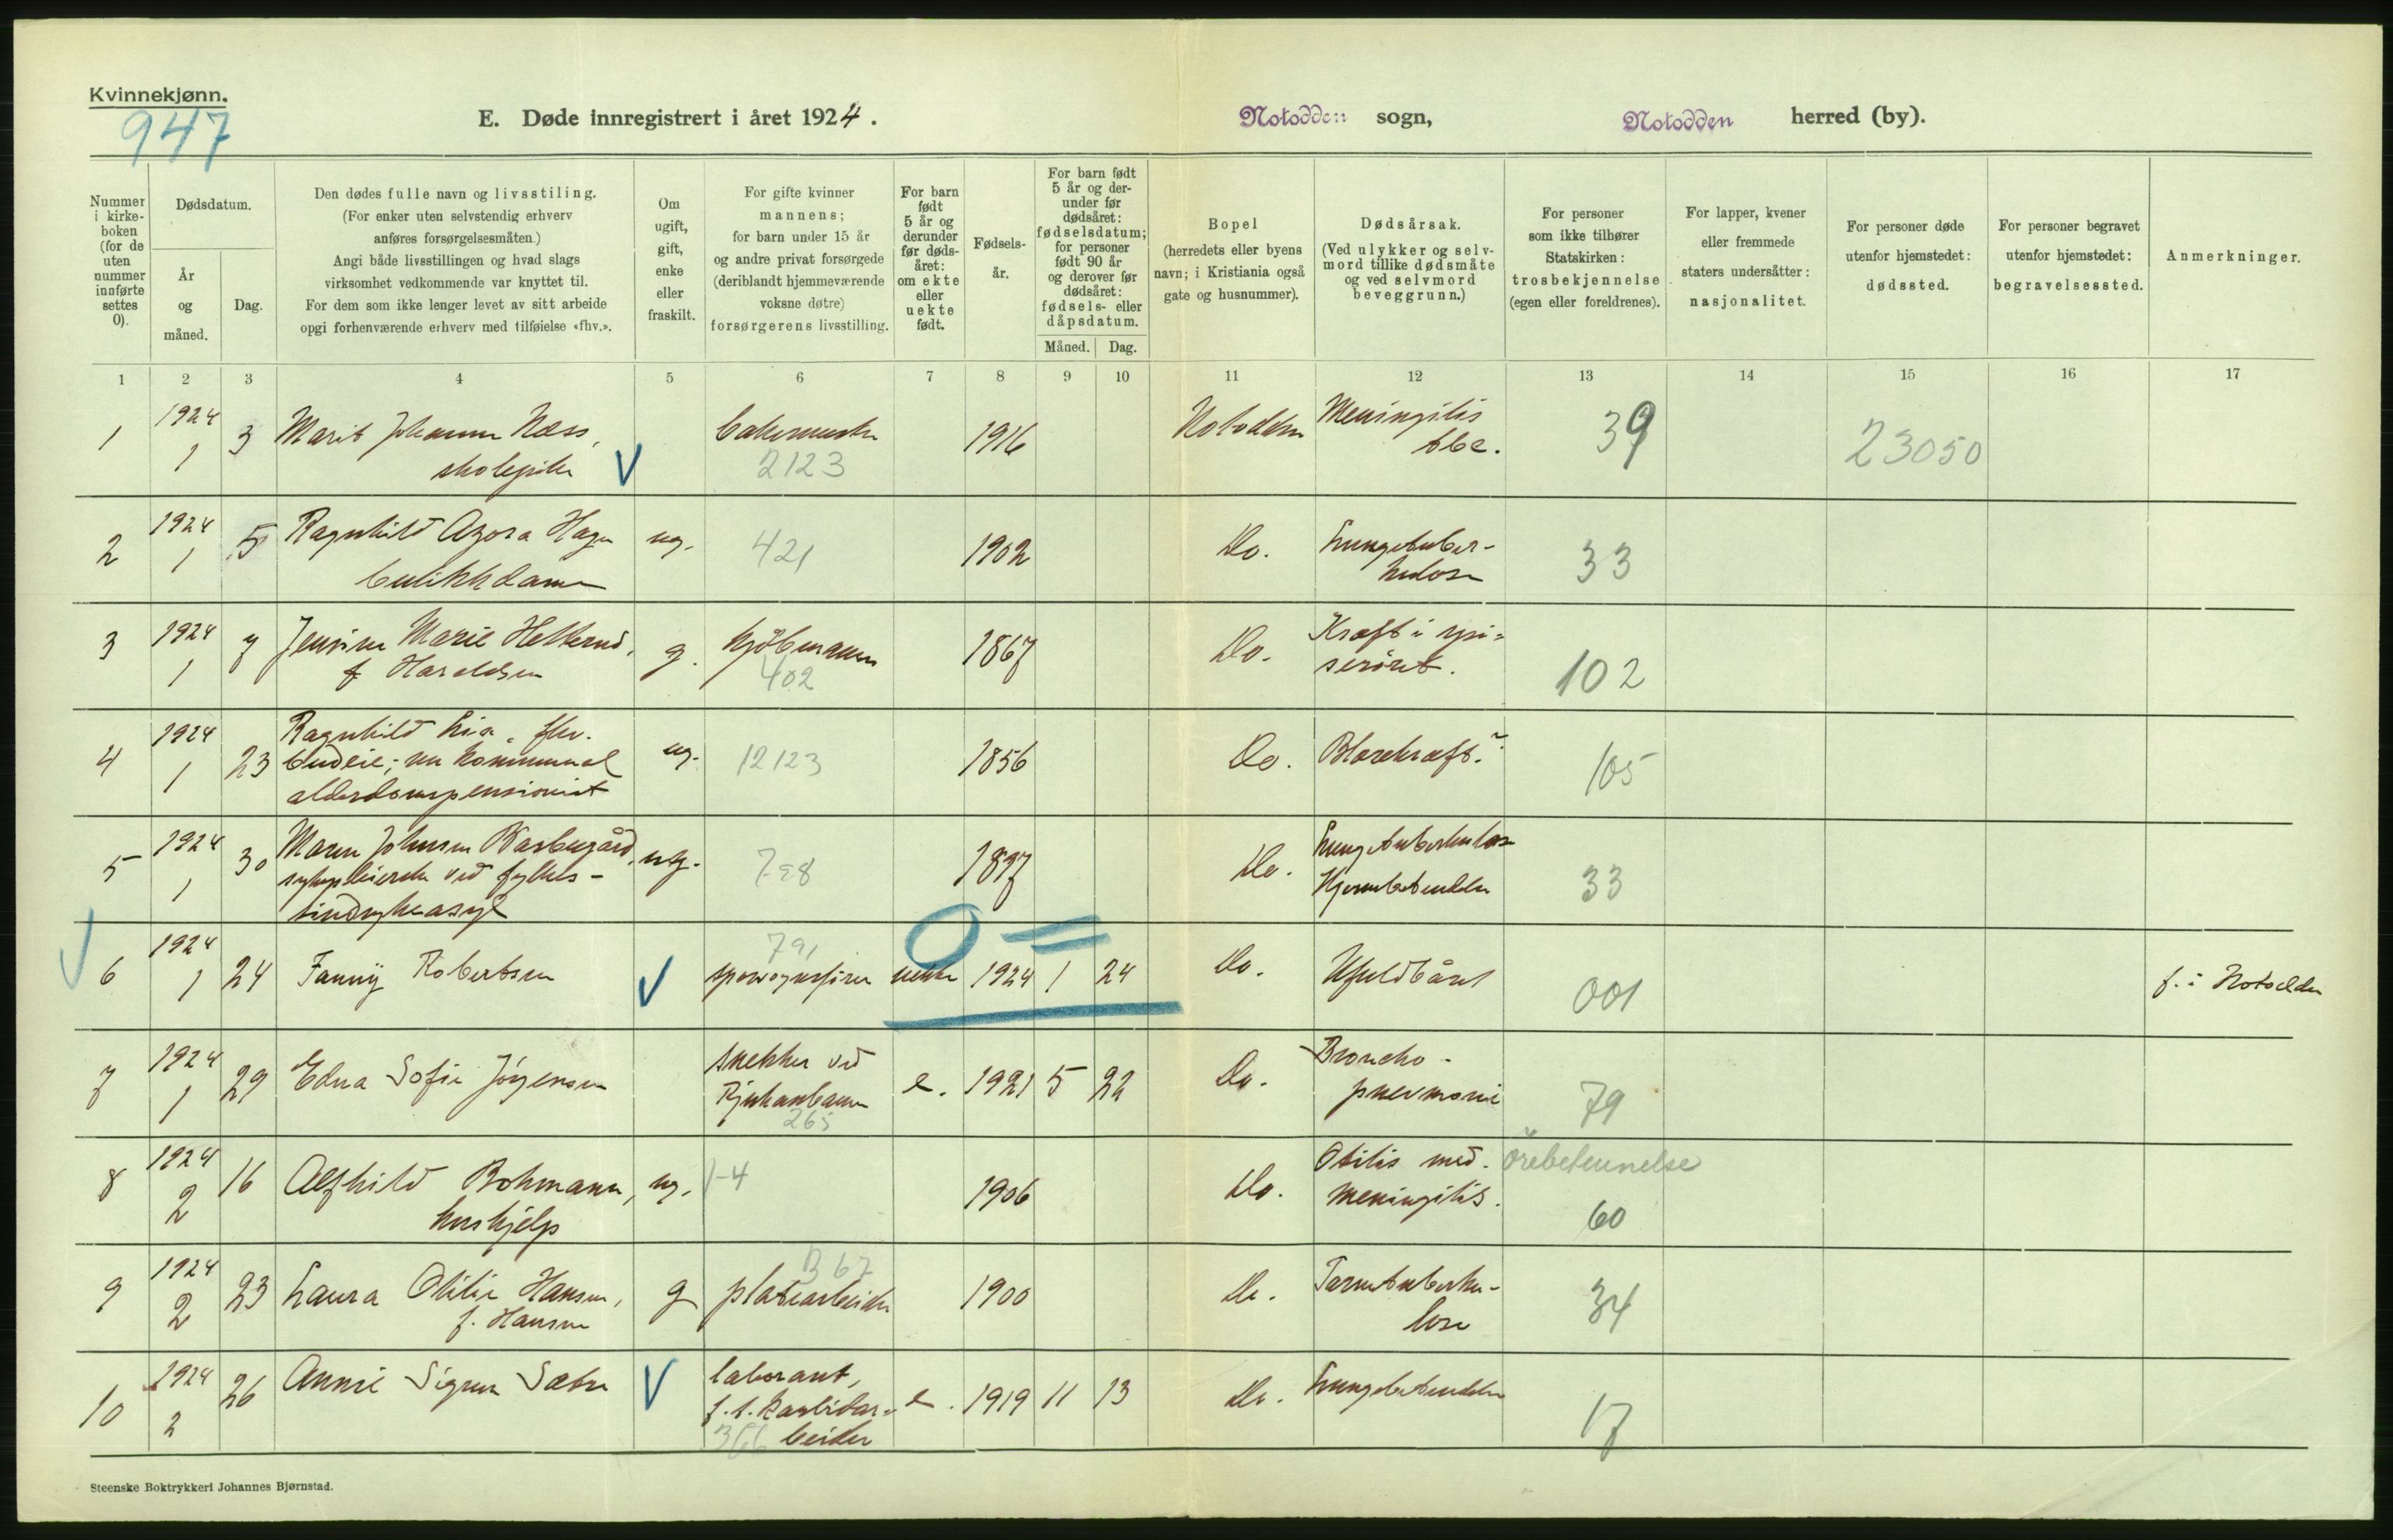 Kvinnekjønn.
947
E. Døde innregistrert i året 1924.
Notodden sogn,
Notodden herred (by).
Nummer i kirke-boken (for de uten nummer innførte settes 0).
Dødsdatum.
År og måned.
Dag.
Den dødes fulle navn og livsstiling.
(For enker uten selvstendig erhverv
anføres forsørgelsesmåten.)
Angi både livsstillingen og hvad slags
virksomhet vedkommende var knyttet til.
For dem som ikke lenger levet av sitt arbeide
opgi forhenværende erhverv med tilføielse «fhv.».
Om ugift, gift, enke eller fraskilt.
For gifte kvinner
mannens;
for barn under 15 år
og andre privat forsørgede
(deriblandt hjemmeværende
voksne døtre)
forsørgerens livsstilling.
For barn født 5 år og derunder før døds-året: om ekte eller uekte født.
Fødsels-år.
For barn født 5 år og der-under før dødsåret: fødselsdatum; for personer født 90 år og derover før dødsåret: fødsels- eller dåpsdatum.
Måned. Dag.
Bopel
(herredets eller byens
navn; i Kristiania også
gate og husnummer).
Dødsårsak.
(Ved ulykker og selv-
mord tillike dødsmåte
og ved selvmord
beveggrunn.)
For personer
som ikke tilhører
Statskirken:
trosbekjennelse
(egen eller foreldrenes).
For lapper, kvener
eller fremmede
staters undersåtter:
nasjonalitet.
For personer døde
utenfor hjemstedet:
dødssted.
For personer begravet
utenfor hjemstedet:
begravelsessted.
Anmerkninger.
1 2 3 4 5 6 7 8 9 10 11 12 13 14 15 16 17
1 1924 1 3 Marit Johanne Næss, 1916 Notodden Meningitis tbc. 39 23050
2123
2 1924 1 5 Ragnhild Agora Hagen ug. 421 1902 Do. Lungetuber-
butikkdame kulose 33
3 1924 1 7 Jensine Marie g. kjøbmann 1867 Do. Kræft i spi-
f. Haraldsen 402 serøret. 102
4 1924 1 23 Ragnhild Lia, fhv. ug. 12123 1856 Do. Blærekræft? 105
budeie; nu kommunal
alderdomspensionist
5 1924 1 30 Maren Johnsen ug. 798 1897 Do. Lungetuberkulose
sykepleierske ved fylkes- Hjernebetendelse 33
sindsykeasyl
6 1924 1 24 Fanny Robertsen 791 uekte 1924 1 24 Do. Ufuldbåret 001 f. i Notodden
0 =
7 1924 1 29 Edna Sofie Jörgensen snekker ved e. 1921 5 22 Do. Broncho-
Rjukanbanen pnevmoni 79
265
8 1924 2 16 Alfhild Bohmann, ug. 1-4 1906 Do. Otitis med. ørebetennelse
hushjelp meningitis. 60
9 1924 2 23 Laura Otilie Hansen, g 367 platearbeider 1900 Do. Tarmtuberku-
f. Hansen lose 34
10 1924 2 26 Annie Sigrun Sætre laborant, e. 1919 11 13 Do. Lungebetendelse 17
f. t. karbidar-
366 beider
Steenske Boktrykkeri Johannes Bjørnstad.